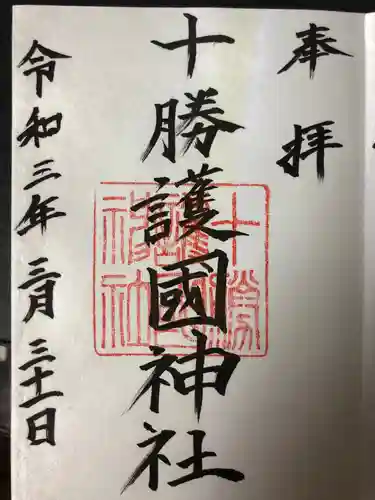 奉拝
十勝護國神社
十勝護國神社
令和三年三月三十一日